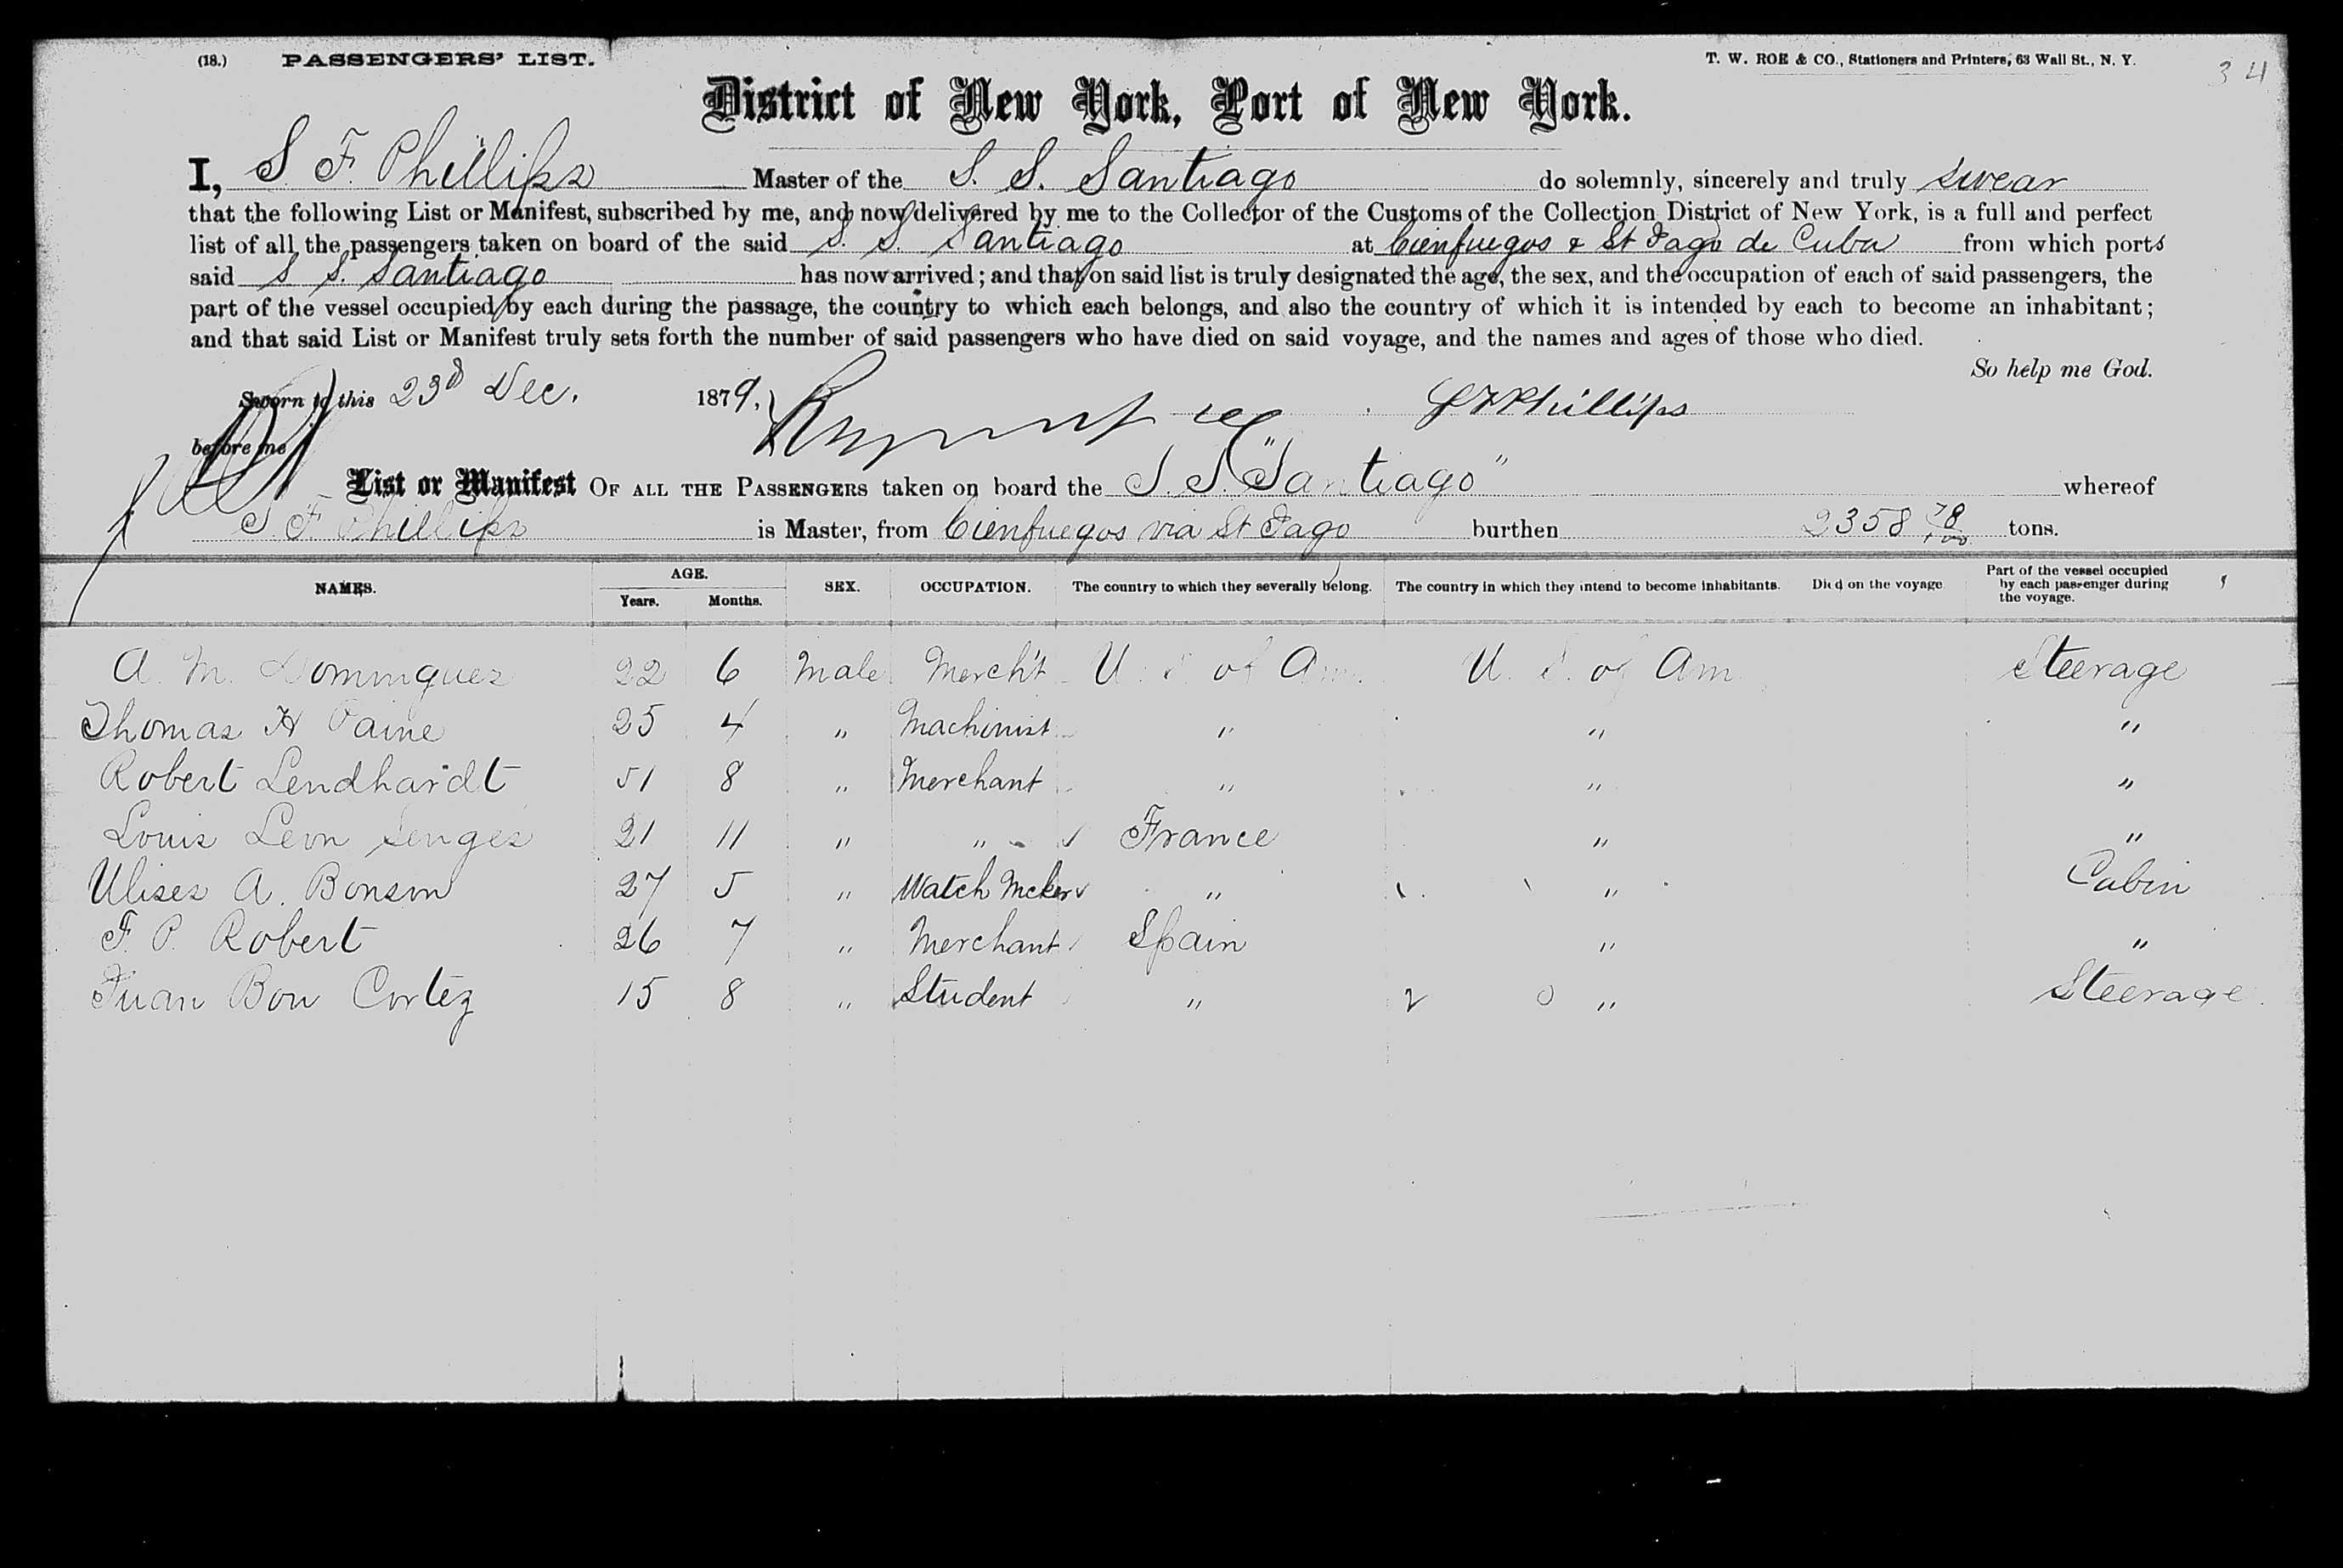 (18.) PASSENGERS' LIST. T. W. ROE & CO., Stationers and Printers, 63 Wall St., N. Y. 34
District of New York, Port of New York.
I, S F. Phillips Master of the S. S. Santiago do solemnly, sincerely and truly swear
that the following List or Manifest, subscribed by me, and now delivered by me to the Collector of the Customs of the Collection District of New York, is a full and perfect
list of all the passengers taken on board of the said S. S. Santiago at Cienfuegos & St Iago de Cuba from which ports
said S S. Santiago has now arrived; and that on said list is truly designated the age, the sex, and the occupation of each of said passengers, the
part of the vessel occupied by each during the passage, the country to which each belongs, and also the country of which it is intended by each to become an inhabitant;
and that said List or Manifest truly sets forth the number of said passengers who have died on said voyage, and the names and ages of those who died.
So help me God.
Sworn to this 23d Dec. 1879, S F Phillips
before me
List or Manifest OF ALL THE PASSENGERS taken on board the S. S. "Santiago" whereof
S. F. Phillips is Master, from Cienfuegos via St Iago burthen 2358 78/100 tons.
NAMES. AGE. Years. Months. SEX. OCCUPATION. The country to which they severally belong. The country in which they intend to become inhabitants. Died on the voyage Part of the vessel occupied by each passenger during the voyage.
A. M. Dominguez 22 6 Male Mercht U. S. of Am. U. S. of Am Steerage
Thomas H Paine 25 4 " Machinist " " "
Robert Lendhardt 51 8 " Merchant " " "
Louis Leon Senges 21 11 " " France " "
Ulises A. Bonson 27 5 " Watch Mcker " " Cabin
F. P. Robert 26 7 " Merchant Spain " "
Juan Bou Cortez 15 8 " Student " " Steerage